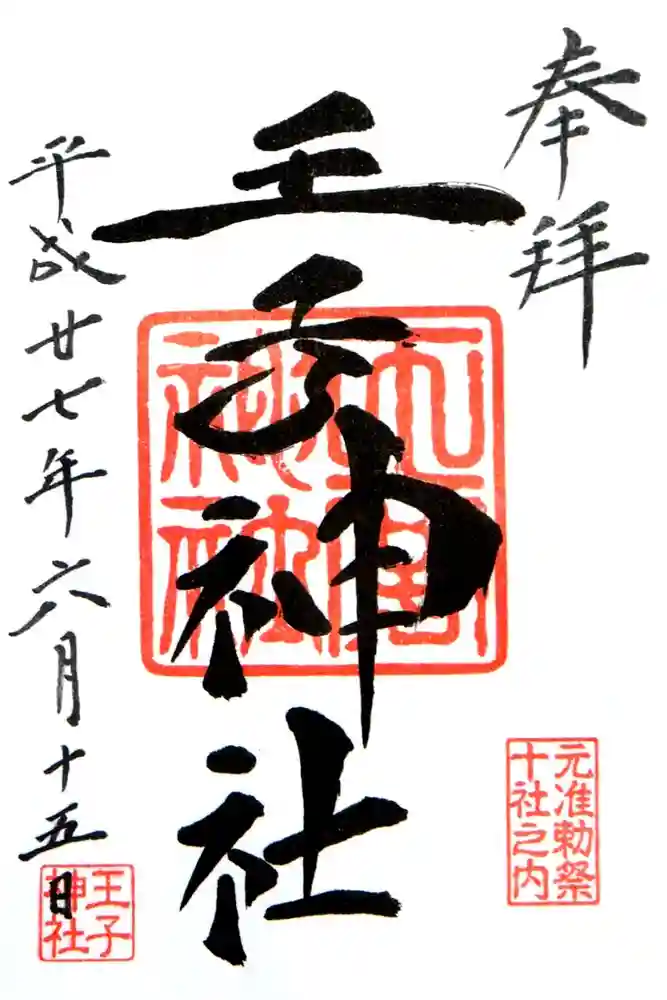 奉拝
王子神社
平成廿七年六月十五日
元准勅祭
十社之内
王子
神社